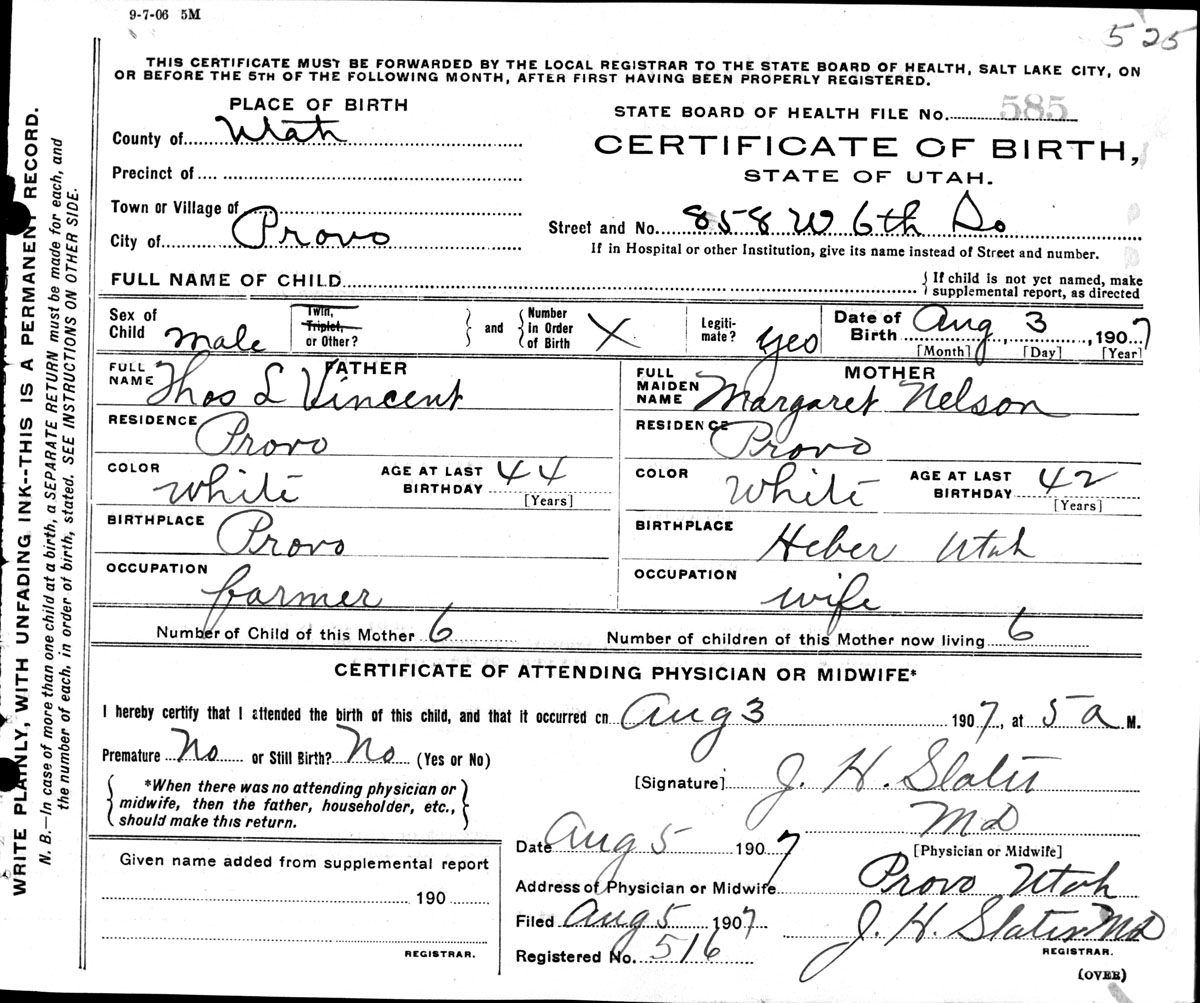 9-7-06 5M
525
THIS CERTIFICATE MUST BE FORWARDED BY THE LOCAL REGISTRAR TO THE STATE BOARD OF HEALTH, SALT LAKE CITY, ON
OR BEFORE THE 5TH OF THE FOLLOWING MONTH, AFTER FIRST HAVING BEEN PROPERLY REGISTERED.
WRITE PLAINLY, WITH UNFADING INK--THIS IS A PERMANENT RECORD.
N. B.—In case of more than one child at a birth, a SEPARATE RETURN must be made for each, and
the number of each, in order of birth, stated. SEE INSTRUCTIONS ON OTHER SIDE.
PLACE OF BIRTH
County of Utah
Precinct of
Town or Village of
City of Provo
STATE BOARD OF HEALTH FILE No. 585
CERTIFICATE OF BIRTH,
STATE OF UTAH.
Street and No. 858 W 6th So
If in Hospital or other Institution, give its name instead of Street and number.
FULL NAME OF CHILD
{ If child is not yet named, make
supplemental report, as directed
Sex of Child Male
Twin, Triplet, or Other? } and { Number in Order of Birth X
Legiti-mate? yes
Date of Birth Aug 3, 1907
[Month] [Day] [Year]
FATHER
FULL NAME Thos L Vincent
RESIDENCE Provo
COLOR White AGE AT LAST BIRTHDAY 44 [Years]
BIRTHPLACE Provo
OCCUPATION farmer
MOTHER
FULL MAIDEN NAME Margaret Nelson
RESIDENCE Provo
COLOR White AGE AT LAST BIRTHDAY 42 [Years]
BIRTHPLACE Heber Utah
OCCUPATION wife
Number of Child of this Mother 6 Number of children of this Mother now living 6
CERTIFICATE OF ATTENDING PHYSICIAN OR MIDWIFE*
I hereby certify that I attended the birth of this child, and that it occurred on Aug 3 1907, at 5 a M.
Premature No or Still Birth? No (Yes or No)
{ *When there was no attending physician or
midwife, then the father, householder, etc.,
should make this return. }
[Signature] J. H. Slater
MD
[Physician or Midwife]
Date Aug 5 1907
Address of Physician or Midwife Provo Utah
Filed Aug 5 1907 J. H. Slater MD
REGISTRAR.
Registered No. 516
(OVER)
Given name added from supplemental report
190
REGISTRAR.